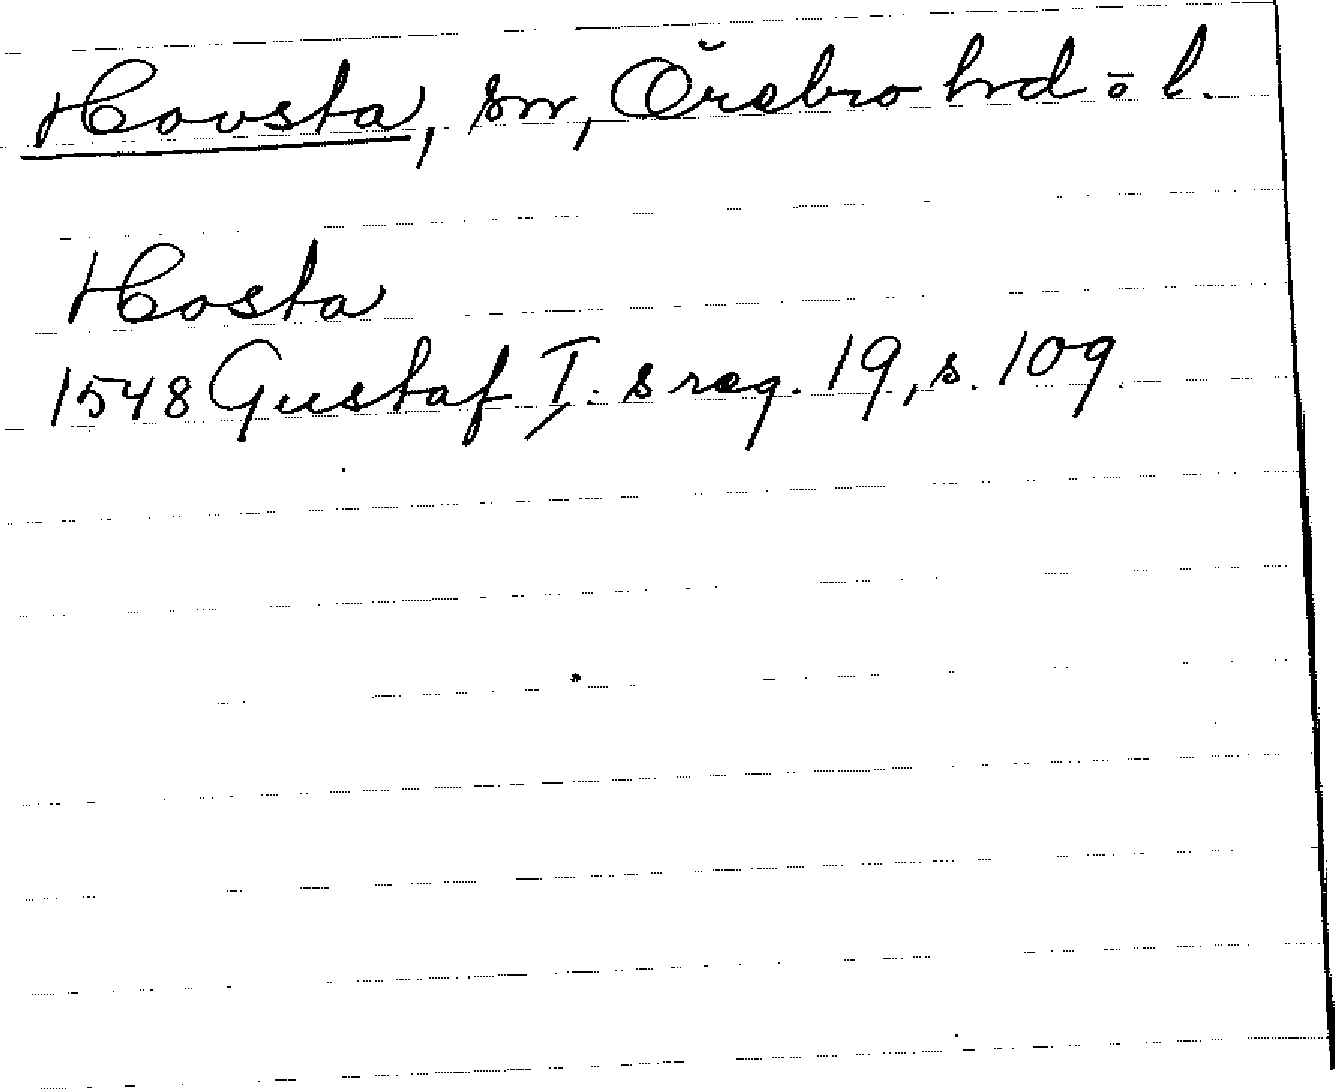 Hovsta, sn, Örebro hd o l.
Hosta
1548 Gustaf I. s reg. 19, s. 109.